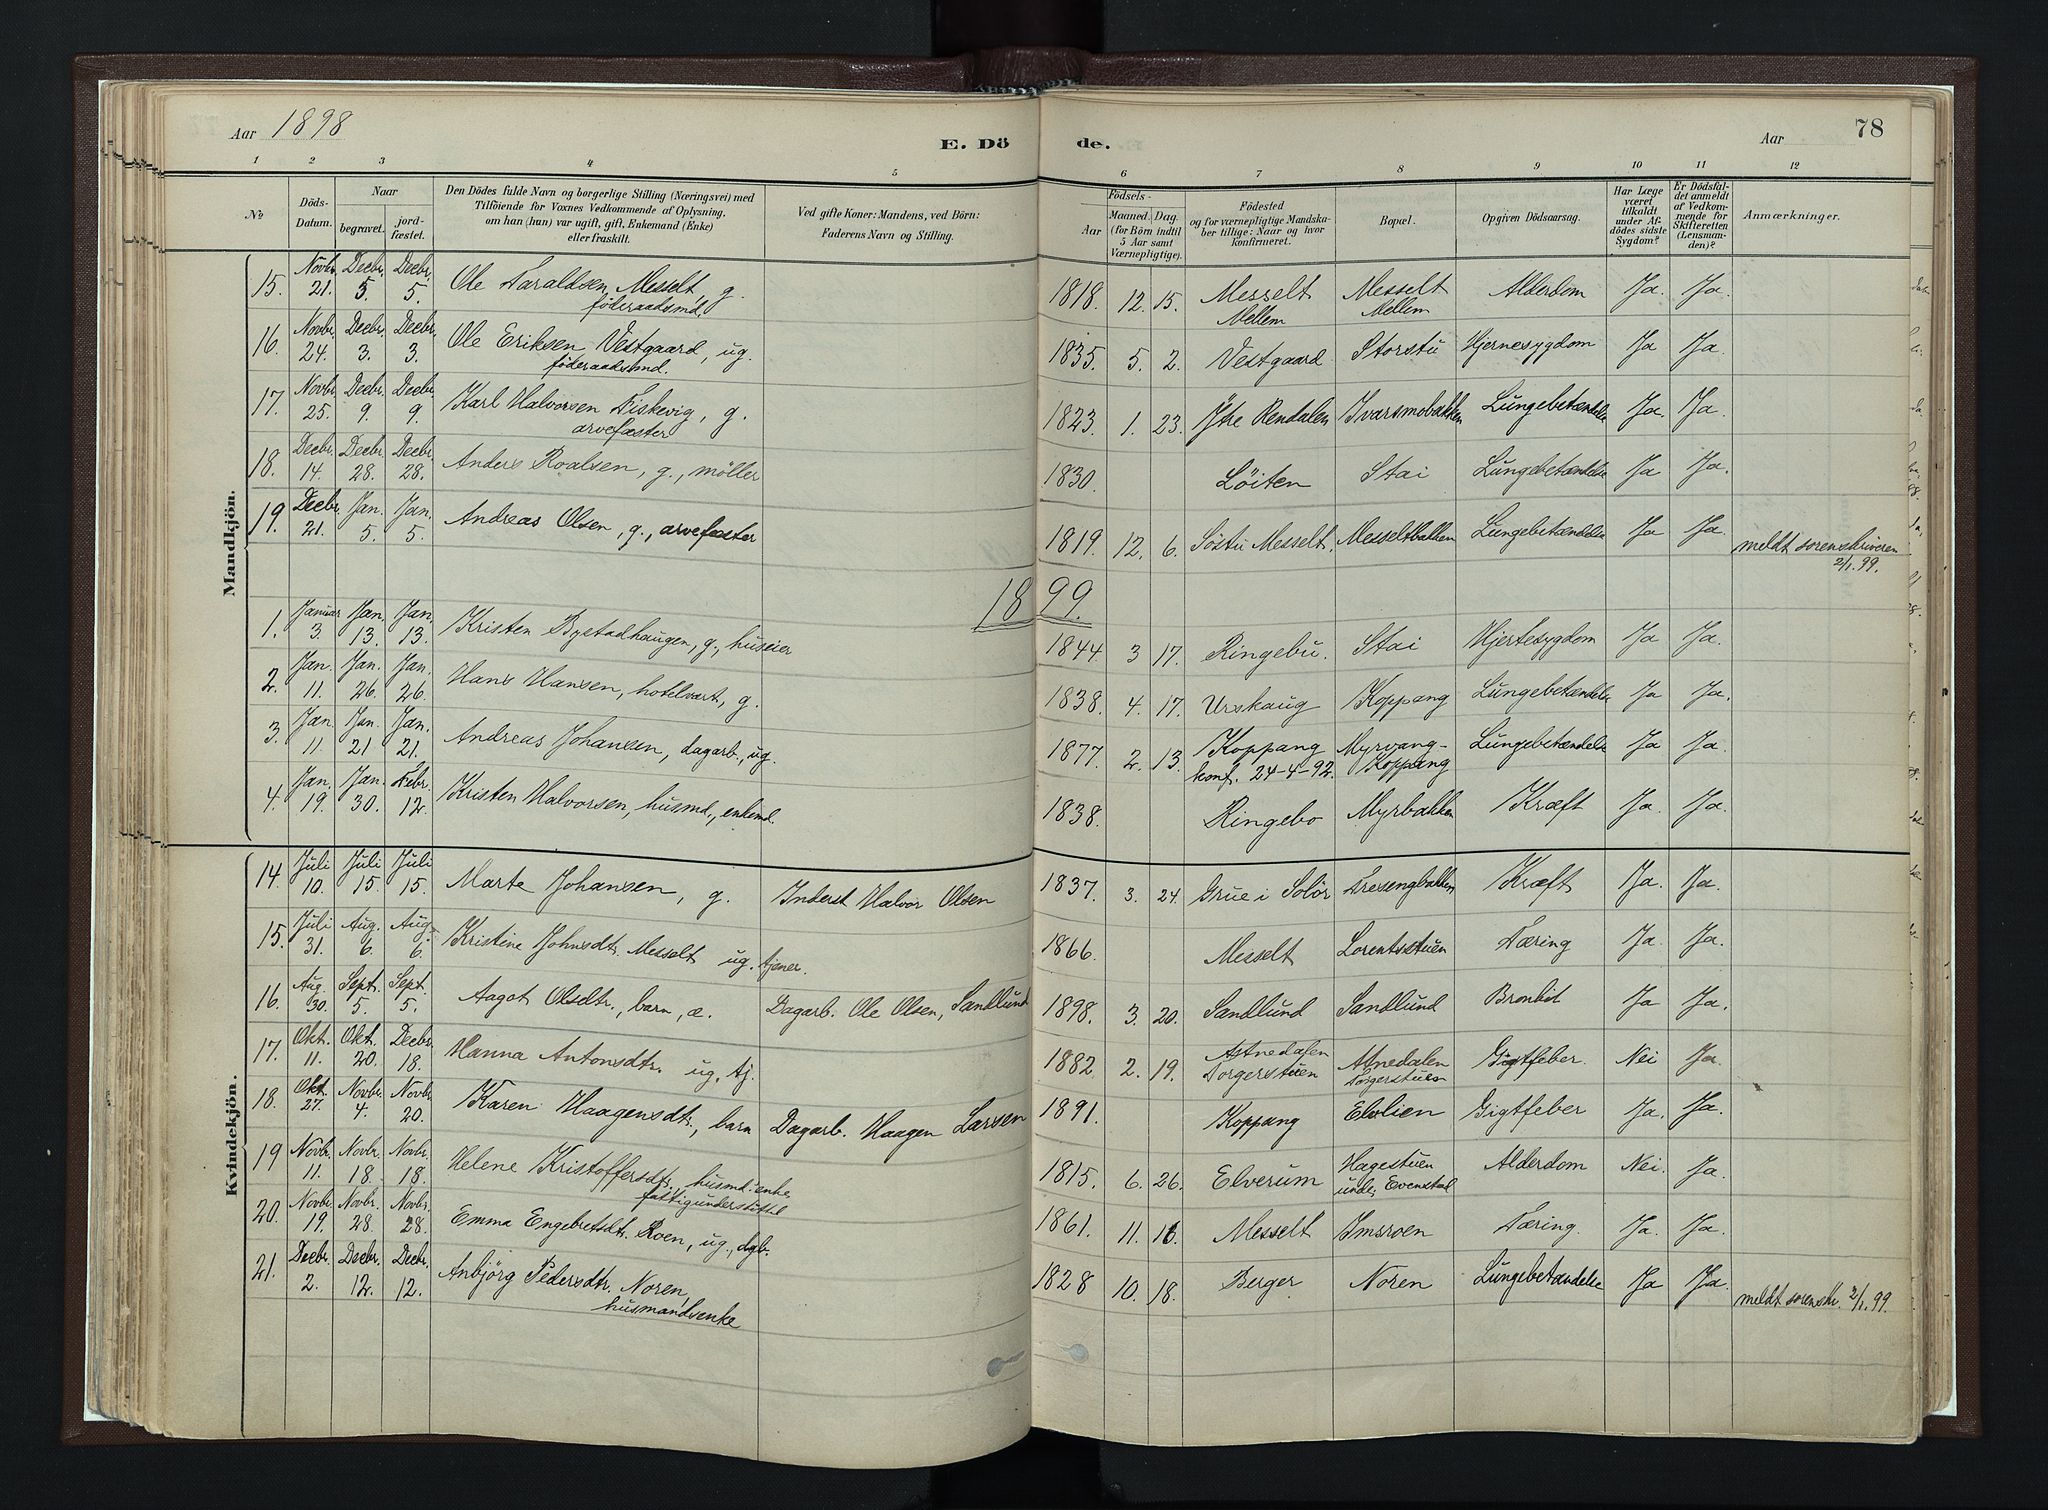 Aar 1898
E. Dö de.
Aar
78
1 2 3 4 5 6 7 8 9 10 11 12
No
Döds-Datum.
Naar
begravet.
jord-fæstet.
Den Dödes fulde Navn og borgerlige Stilling (Næringsvei) med
Tilföiende for Voxnes Vedkommende af Oplysning,
om han (hun) var ugift, gift, Enkemand (Enke)
eller fraskilt.
Ved gifte Koner: Mandens, ved Börn:
Faderens Navn og Stilling.
Födsels-
Aar
Maaned. Dag.
(for Börn indtil
5 Aar samt
Værnepligtige).
Födested
og for værnepligtige Mandska-
ber tillige: Naar og hvor
konfirmeret.
Bopæl.
Opgiven Dödsaarsag.
Har Læge
været
tilkaldt
under Af-
dödes sidste
Sygdom?
Er Dödsfal-
det anmeldt
af Vedkom-
mende for
Skifteretten
(Lensman-
den)?
Anmærkninger.
Mandkjön.
15. Novbr. 21. Decbr. 5. Decbr. 5. Ole Taraldsen Messelt g. føderaadsmd. 1818. 12. 15. Messelt Mellem Messelt Mellem Alderdom Ja. Ja.
16. Novbr. 24. Decbr. 3. Decbr. 3. Ole Eriksen Vestgaard, ug. føderaadsmd. 1835. 5. 2. Vestgaard Storstu Hjernesygdom Ja Ja.
17. Novbr. 25. Decbr. 9. Decbr. 9. Karl Halvorsen Fiskevig, g. arvefæster 1823. 1. 23. Ytre Rendalen Ivarsmobakken Lungebetændelse Ja. Ja.
18. Decbr. 14. Decbr. 28. Decbr. 28. Anders Roalsen, g., möller 1830. Löiten Stai Lungebetændelse Ja Ja.
19. Decbr. 21. Jan. 5. Jan. 5. Andreas Olsen, g., arvefæster 1819. 12. 6. Söstu Messelt. Messeltbakken Lungebetændelse Ja Ja. meldt sorenskriveren 2/1.99.
1899.
1. Januar 3. Jan. 13. Jan. 13. Kristen Bystadhaugen, g., huseier 1844. 3 17. Ringebu. Stai Hjertesygdom Ja Ja.
2. Jan. 11. Jan. 26. Jan 26. Hans Hansen, hotelvært, g. 1838. 4. 17. Urskaug Koppang Lungebetændelse Ja Ja.
3. Jan. 11. Jan. 21 Jan. 21. Andreas Johansen, dagarb., ug. 1877. 2. 13. Koppang konf. 24-4-92. Myrvang-Koppang Lungebetændelse Ja Ja.
4. Jan. 19. Jan. 30. Febr. 12. Kristen Halvorsen, husmd., enkemd. 1838. Ringebo Myrbakken Kræft Ja. Ja.
Kvindekjön.
14. Juli 10. Juli 15. Juli 15. Marte Johansen, g. Inderst Halvor Olsen 1837. 3. 24. Grue i Solör Fresengbakken Kræft Ja. Ja.
15. Juli 31. Aug. 6. Aug. 6. Kristine Johnsdtr. Messelt ug. tjener. 1866. Messelt Lorentsstuen Tæring Ja. Ja.
16. Aug. 30. Sept. 5. Sept. 5. Aagot Olsdtr., barn, æ. Dagarb. Ole Olsen, Sandlund 1898. 3. 20. Sandlund Sandlund Bronkit Ja Ja.
17. Okt. 11. Okt. 20. Decbr. 18. Hanna Antonsdtr. ug. tj. 1882. 2. 19. Atnedalen Torgerstuen Atnedalen Torgerstuen Gigtfeber. Nei Ja.
18. Okt. 27. Novbr. 4. Novbr. 20. Karen Haagensdtr., barn Dagarb. Haagen Larsen 1891. Koppang Elvlien Gigtfeber Ja. Ja.
19 Novbr. 11. Novbr. 18. Novbr. 18. Helene Kristoffersdtr., husmd. enke, fattigunderstöttet 1815. 6. 26. Elverum Hagestuen under Evenstad Alderdom Nei. Ja.
20. Novbr. 19. Novbr. 28. Novbr. 28. Emma Engebretsdtr. Roen, ug., dgb. 1861. 11. Messelt Imsroen Tæring. Ja. Ja.
21. Decbr. 2. Decbr. 12. Decbr. 12. Anbjörg Pedersdtr. Noren, husmandsenke 1828 10. 18. Berger Noren Lungebetændelse Ja Ja. meldt sorenskr. 2/1.99.